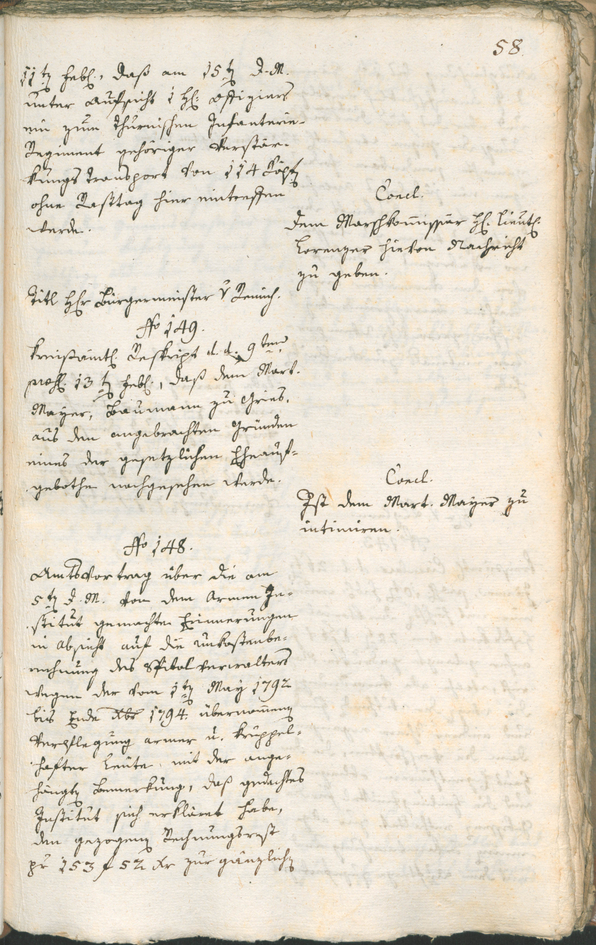 58
11ten Febr., daß am 15ten d. M.
unter Aufsicht 1 H. Offiziers
ein zum Thurnischen Infanterie-
Regiment gehöriger Verstär-
kungs Transport von 114 Köpfen
ohne Rasttag hier eintreffen
werde.
Concl.
Dem Marschkommissär H. Lieut.
Lorenzer hievon Nachricht
zu geben.
Titl Hr Bürgermeister v
No 149.
Kreisämtl. Reskript d. d. 9ten
13ten Febr., daß dem Mart.
Mayer, Baumann zu Gries,
aus den angebrachten Gründen
eines der gesetzlichen Eheauf-
gebothe nachgesehen werde.
Concl.
Ist dem Mart. Mayer zu
intimiren.
No 148.
Amtsvortrag über die am
5ten d. M. von dem Armen In-
stitut gemachten Erinnerungen
in Absicht auf die Unkostenbe-
rechnung des Spitalverwalters
wegen der vom 1ten May 1792
bis Ende Xbr 1794 übernommenen
Verpflegung armer u. kruppel-
hafter Leute mit der ange-
hängten Bemerkung, daß gedachtes
Institut sich erkläret habe,
den gezogenen Rechnungsrest
pr 153 f 52 kr zur gänzlichen